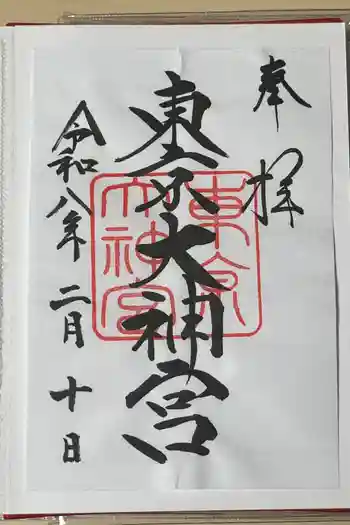 奉拝
東京大神宮
東京
大神宮
令和八年二月十日